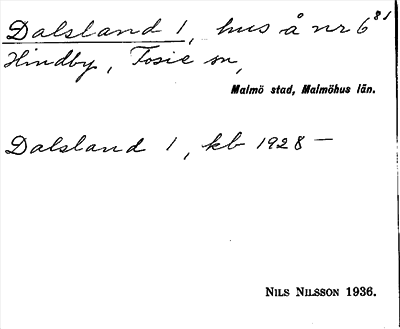 Dalsland 1, hus å nr 6⁸¹
Hindby, Fosie sn,
Malmö stad, Malmöhus län.
Dalsland 1, kb 1928 —
NILS NILSSON 1936.